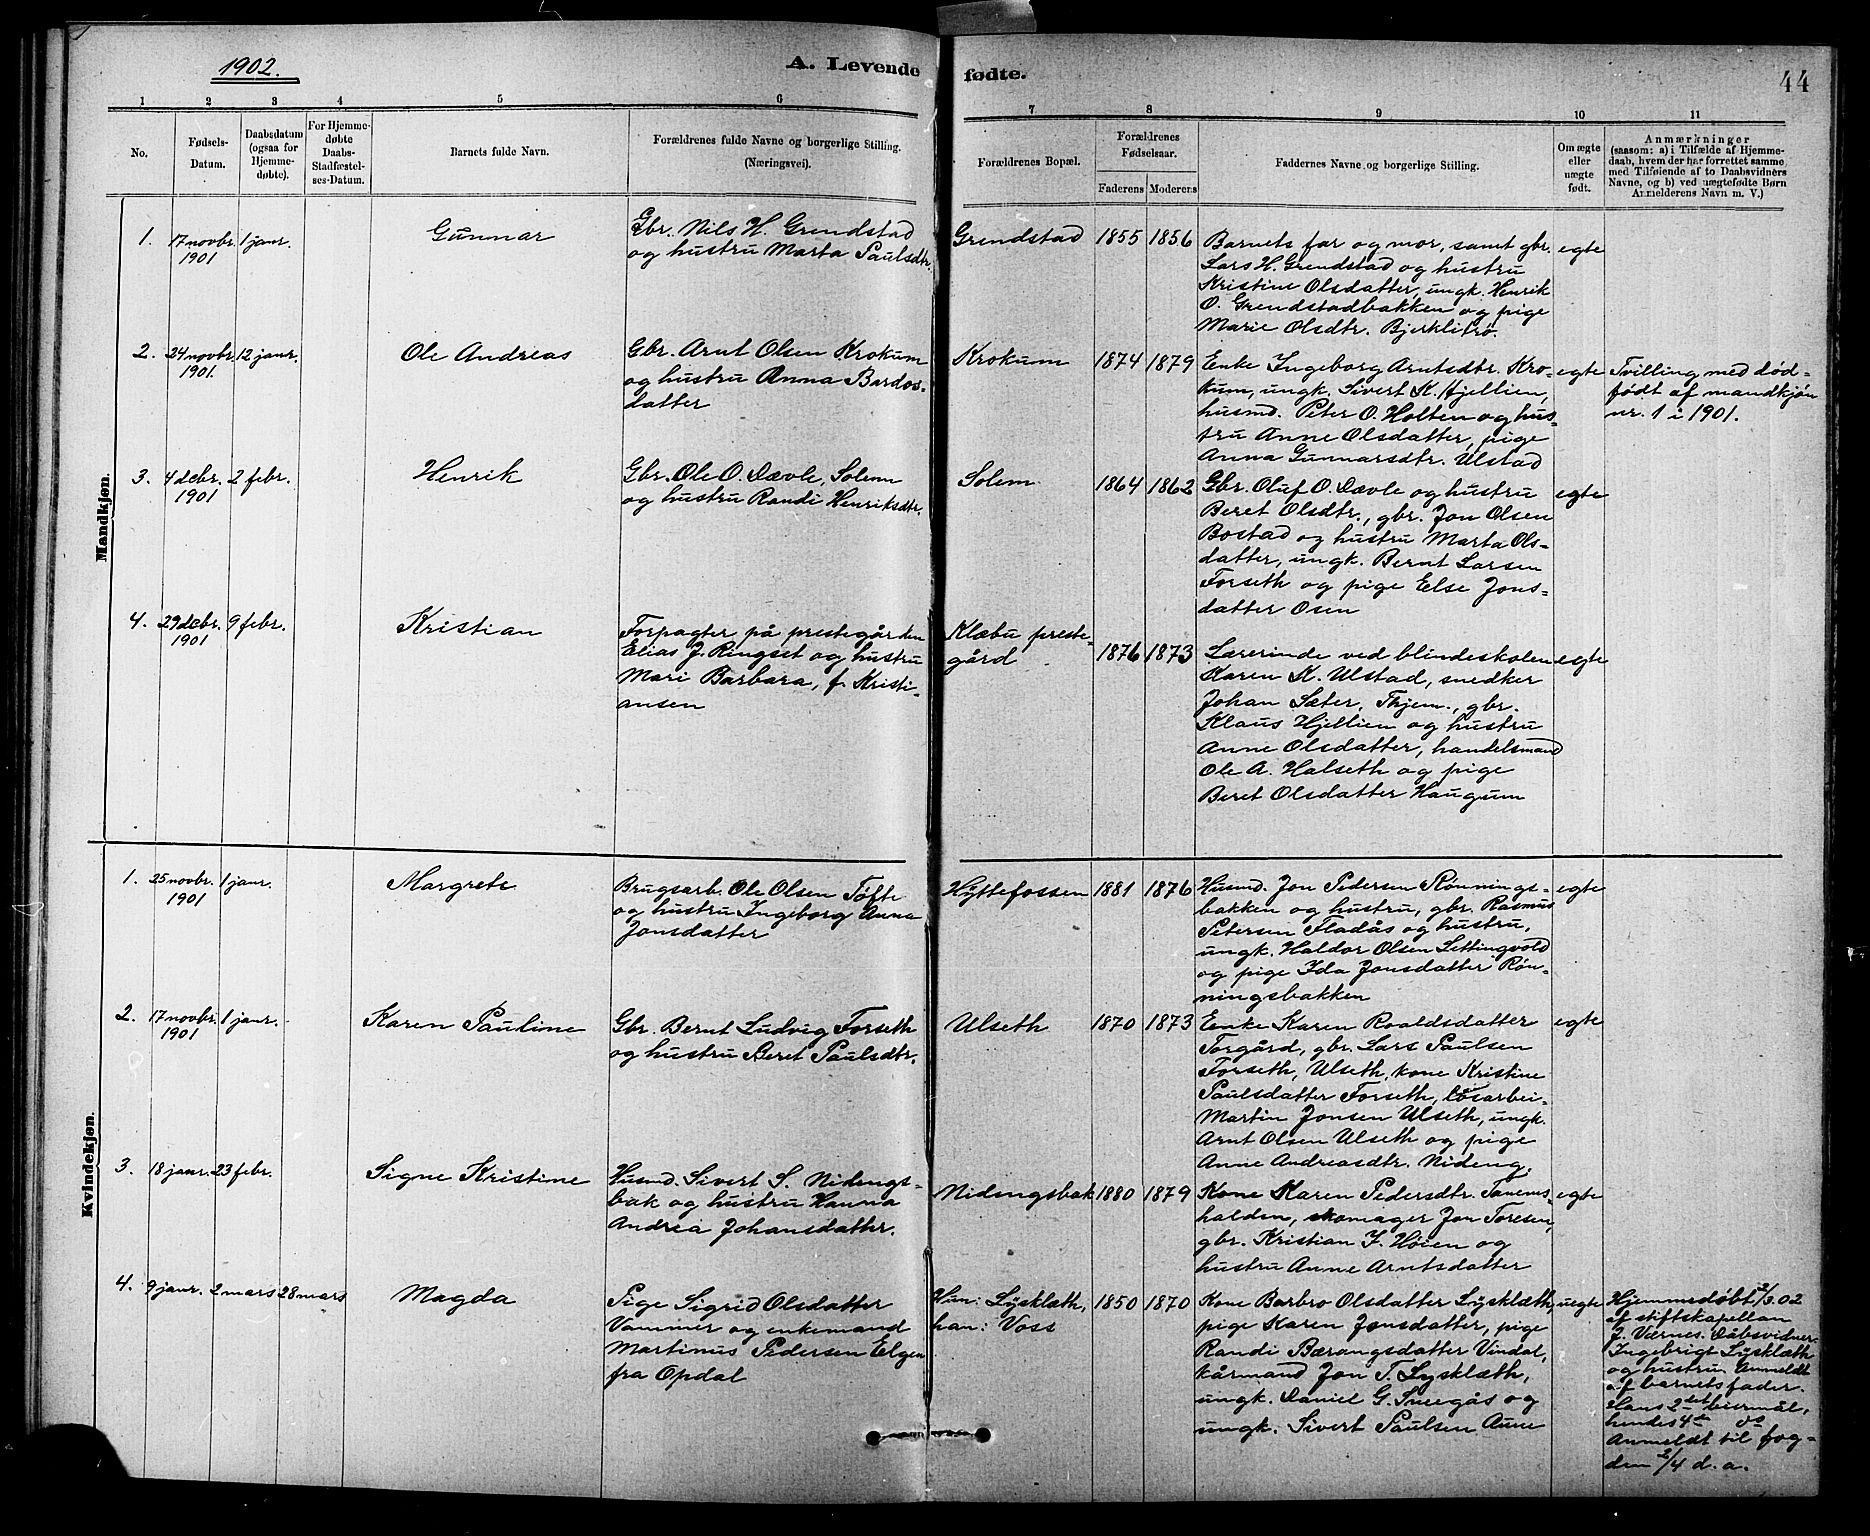 1902.
A. Levende
fødte.
44
1 2 3 4 5 6 7 8 9 10 11
No.
Fødsels-
Datum.
Daabsdatum
(ogsaa for
Hjemme-
døbte).
For Hjemme-
døbte
Daabs-
Stadfæstel-
ses-Datum.
Barnets fulde Navn.
Forældrenes fulde Navne og borgerlige Stilling.
(Næringsvei).
Forældrenes Bopæl.
Forældrenes
Fødselsaar.
Faderens Moderens
Faddernes Navne og borgerlige Stilling.
Om ægte
eller
uægte
født.
Anmærkninger
(saasom: a) i Tilfælde af Hjemme-
daab, hvem der har forrettet samme,
med Tilføiende af to Daabsvidners
Navne, og b) ved uægtefødte Børn
Anmelderens Navn m. V.)
Mandkjøn.
1. 17 novbr. 1 janr.
1901
Gunnar
Gbr. Nils H. Grendstad
og hustru Marta Paulsdtr.
Grendstad
1855 1856
Barnets far og mor, samt gbr.
Lars H. Grendstad og hustru
Kristine Olsdatter, ungk. Henrik
O. Grendstadbakken og pige
Marie Olsdtr. Bjerklitrø.
egte
2. 24 novbr. 12 janr.
1901.
Ole Andreas
Gbr. Arnt Olsen Krokum
og hustru Anna Bardos-
datter
Krokum
1874 1879
Enke Ingeborg Arntsdtr. Kro-
kum, ungk. Sivert K. Hjellien,
husmd. Peter O. Holten og hus-
tru Anne Olsdatter, pige
Anna Gunnarsdtr. Ulstad
egte
Tvilling med død-
født af mandkjøn
nr. 1 i 1901.
3. 4 debr. 2 febr.
1901
Henrik
Gbr. Ole O. Dævle, Solem
og hustru Randi Henriksdtr.
Solem
1864 1862
Gbr. Oluf O. Dævle og hustru
Beret Olsdtr., gbr. Jon Olsen
Bostad og hustru Marta Ols-
datter, ungk. Bernt Larsen
Forseth og pige Else Jons-
datter Osen
egte
4. 29 debr. 9 febr.
1901
Kristian
Forpagter på prestegården
Elias J. Ringset og hustru
Mari Barbara, f. Kristi-
ansen
Klæbu preste-
gård
1876 1873
Lærerinde ved blindeskolen
Karen K. Ulstad, snedker
Johan Sæter, Thjem., gbr.
Klaus Hjellien og hustru
Anne Olsdatter, handelsmand
Ole A. Halseth og pige
Beret Olsdatter Haugum
egte
Kvindekjøn.
1. 25 novbr. 1 janr.
1901
Margrete
Brugsarb. Ole Olsen Tøfte
og hustru Ingeborg Anna
Jonsdatter
Hyttefossen
1881 1876
Husmd. Jon Pedersen Rønnings-
bakken og hustru, gbr. Rasmus
Petersen Fladås og hustru,
ungk. Haldor Olsen Settingvold
og pige Ida Jonsdatter Røn-
ningsbakken
egte
2. 17 novbr. 1 janr.
1901
Karen Pauline
Gbr. Bernt Ludvig Forseth
og hustru Beret Paulsdtr.
Ulseth
1870 1873
Enke Karen Roaldsdatter
Torgård, gbr. Lars Paulsen
Forseth, Ulseth, kone Kristine
Paulsdatter Forseth, løsarbei-
Martin Jonsen Ulseth, ungk.
Arnt Olsen Ulseth og pige
Anne Andreasdtr. Nideng.
egte
3. 18 janr. 23 febr.
Signe Kristine
Husmd. Sivert S. Nidengs-
bak og hustru Hanna
Andrea Johansdatter.
Nidengsbak
1880 1879
Kone Karen Pedersdtr. Tanems-
halden, skomager Jon Toresen,
gbr. Kristian J. Høien og
hustru Anne Arntsdatter
egte
4. 9 janr. 2 mars 28 mars
Magda
Pige Sigrid Olsdatter
Vammer og enkemand
Martinus Pedersen Elgen
fra Opdal
Hun: Lysklæth,
han: Voss
1850 1870
Kone Barbro Olsdatter Lysklæth,
pige Karen Jonsdatter, pige
Randi Bærangsdatter Vindal,
kårmand Jon T. Lysklæth,
ungk. Daniel G. Sneegås og
ungk. Sivert Paulsen Aune
uegte
Hjemmedøbt 2/3.02
af stiftskapellan
J. Værnes. Dåbsvidner:
Ingebrigt Lysklæth
og hustru. Anmeldt
af barnets fader.
Hans 2det leiermål,
hendes 4de do
Anmeldt til fog-
den 2/4 d.a.